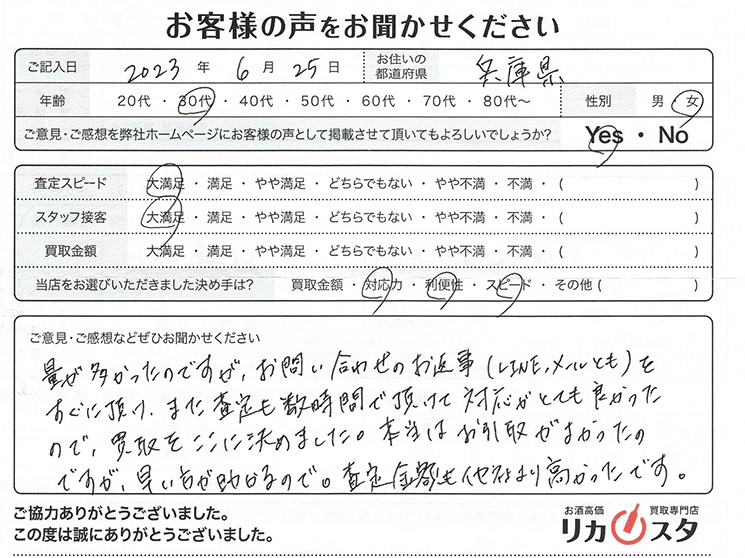 お客様の声をお聞かせください
ご記入日 2023 年 6 月 25 日 お住いの都道府県 兵庫県
年齢 20代 ・ 30代 ・ 40代 ・ 50代 ・ 60代 ・ 70代 ・ 80代〜 性別 男 女
ご意見・ご感想を弊社ホームページにお客様の声として掲載させて頂いてもよろしいでしょうか? Yes ・ No
査定スピード 大満足 ・ 満足 ・ やや満足 ・ どちらでもない ・ やや不満 ・ 不満 ・ ( )
スタッフ接客 大満足 ・ 満足 ・ やや満足 ・ どちらでもない ・ やや不満 ・ 不満 ・ ( )
買取金額 大満足 ・ 満足 ・ やや満足 ・ どちらでもない ・ やや不満 ・ 不満 ・ ( )
当店をお選びいただきました決め手は? 買取金額 ・ 対応力 ・ 利便性 ・ スピード ・ その他 ( )
ご意見・ご感想などぜひお聞かせください
量が多かったのですが、お問い合わせのお返事(LINE、メールとも)を
すぐに頂け、また査定も数時間で頂けて対応がとても良かった
ので、買取をここに決めました。本当はお引取がよかったの
ですが、早い方が助かるので。査定金額も他社より高かったです。
ご協力ありがとうございました。
この度は誠にありがとうございました。
お酒高価 買取専門店
リカスタ